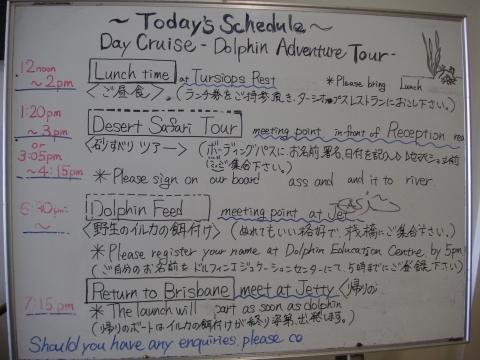 ~ Today's Schedule ~
Day Cruise - Dolphin Adventure Tour -
12 noon ~ 2pm
Lunch time at Tursiops Rest
* Please bring Lunch
<ご昼食>. (ランチ券をご持参頂き、ターシオップスレストランにおこし下さい。)
1:20pm ~ 3pm
Desert Safari Tour meeting point in front of Reception
or 3:05pm ~ 4:15pm
<砂すべりツアー> (ボーディングパスに、お名前、署名、日付を記入し
ご集合下さい。)
* Please sign on our board ass and and it to river
~
Dolphin Feed meeting point at Jet
<野生のイルカの餌付け> (ぬれてもいい格好で、桟橋にご集合下さい。)
* Please register your name at Dolphin Education Centre by 5pm
(ご自分のお名前をドルフィンエジュケーションセンターにて、5時までにご登録下さい)
7:15pm
Return to Brisbane meet at Jetty <帰りの
* The launch will part as soon as dolphin
(帰りのボートはイルカの餌付けが終り次第、出発します。)
Should you have any enquiries please co